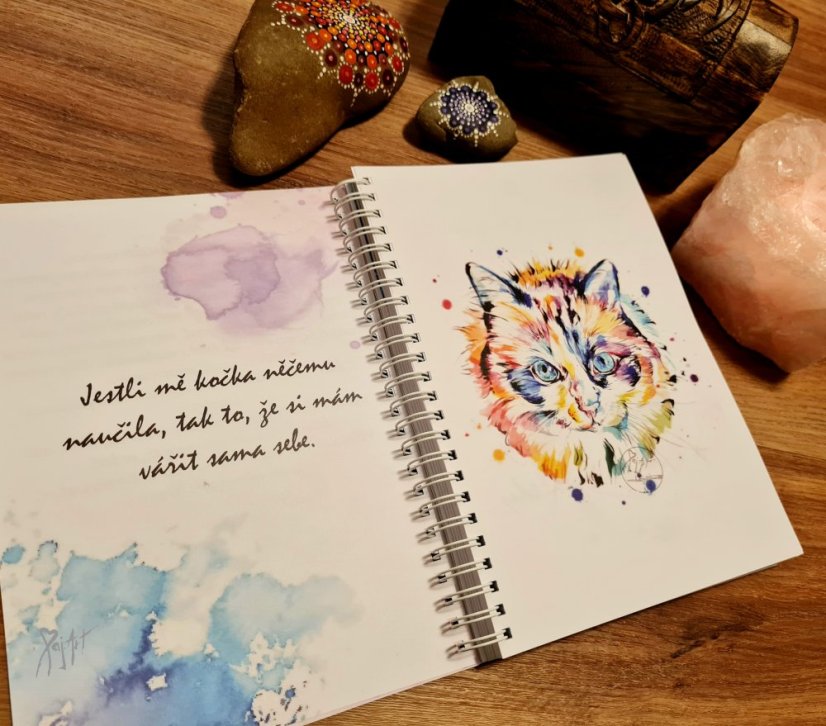 Jestli mě kočka něčemu
naučila, tak to, že si mám
vářit sama sebe.